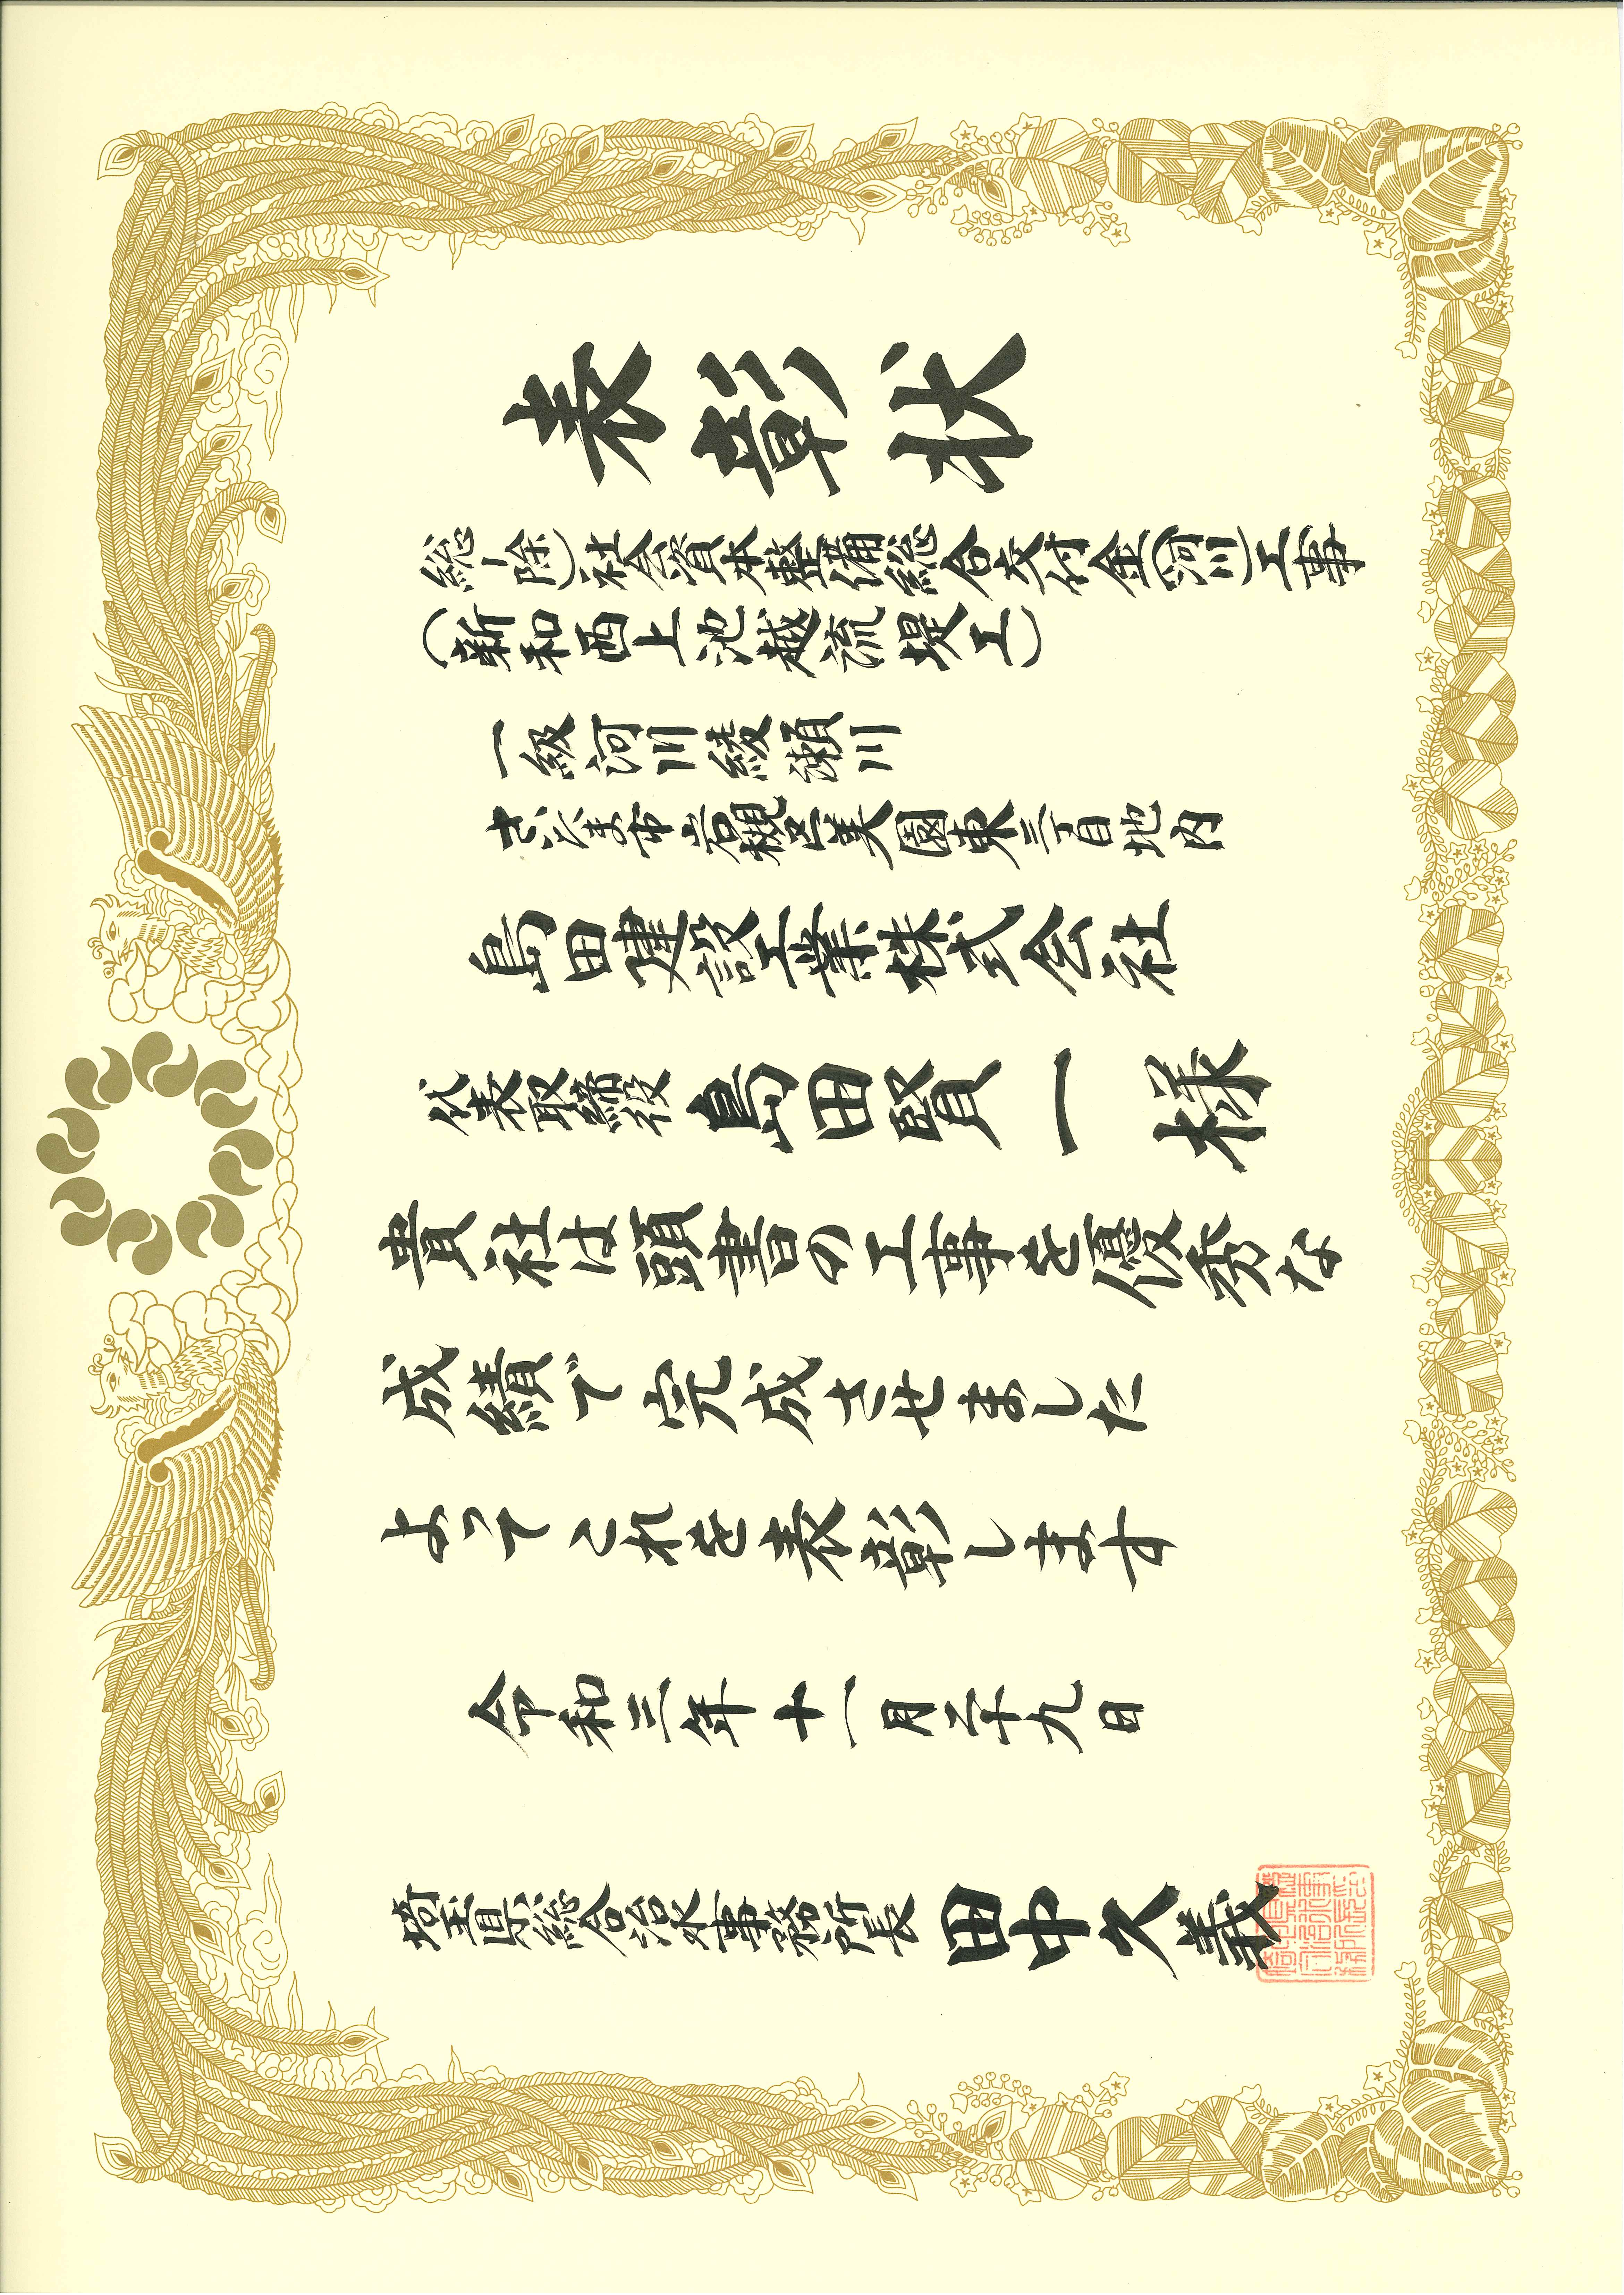 表彰状
総Ⅰ除)社会資本整備総合交付金(河川)工事
(新和西上池越流堤工)
一級河川綾瀬川
さいたま市岩槻区美園東三丁目地内
島田建設工業株式会社
代表取締役 島田賢一 様
貴社は頭書の工事を優秀な
成績で完成させました
よってこれを表彰します
令和三年十一月二十九日
埼玉県総合治水事務所長 田中久義